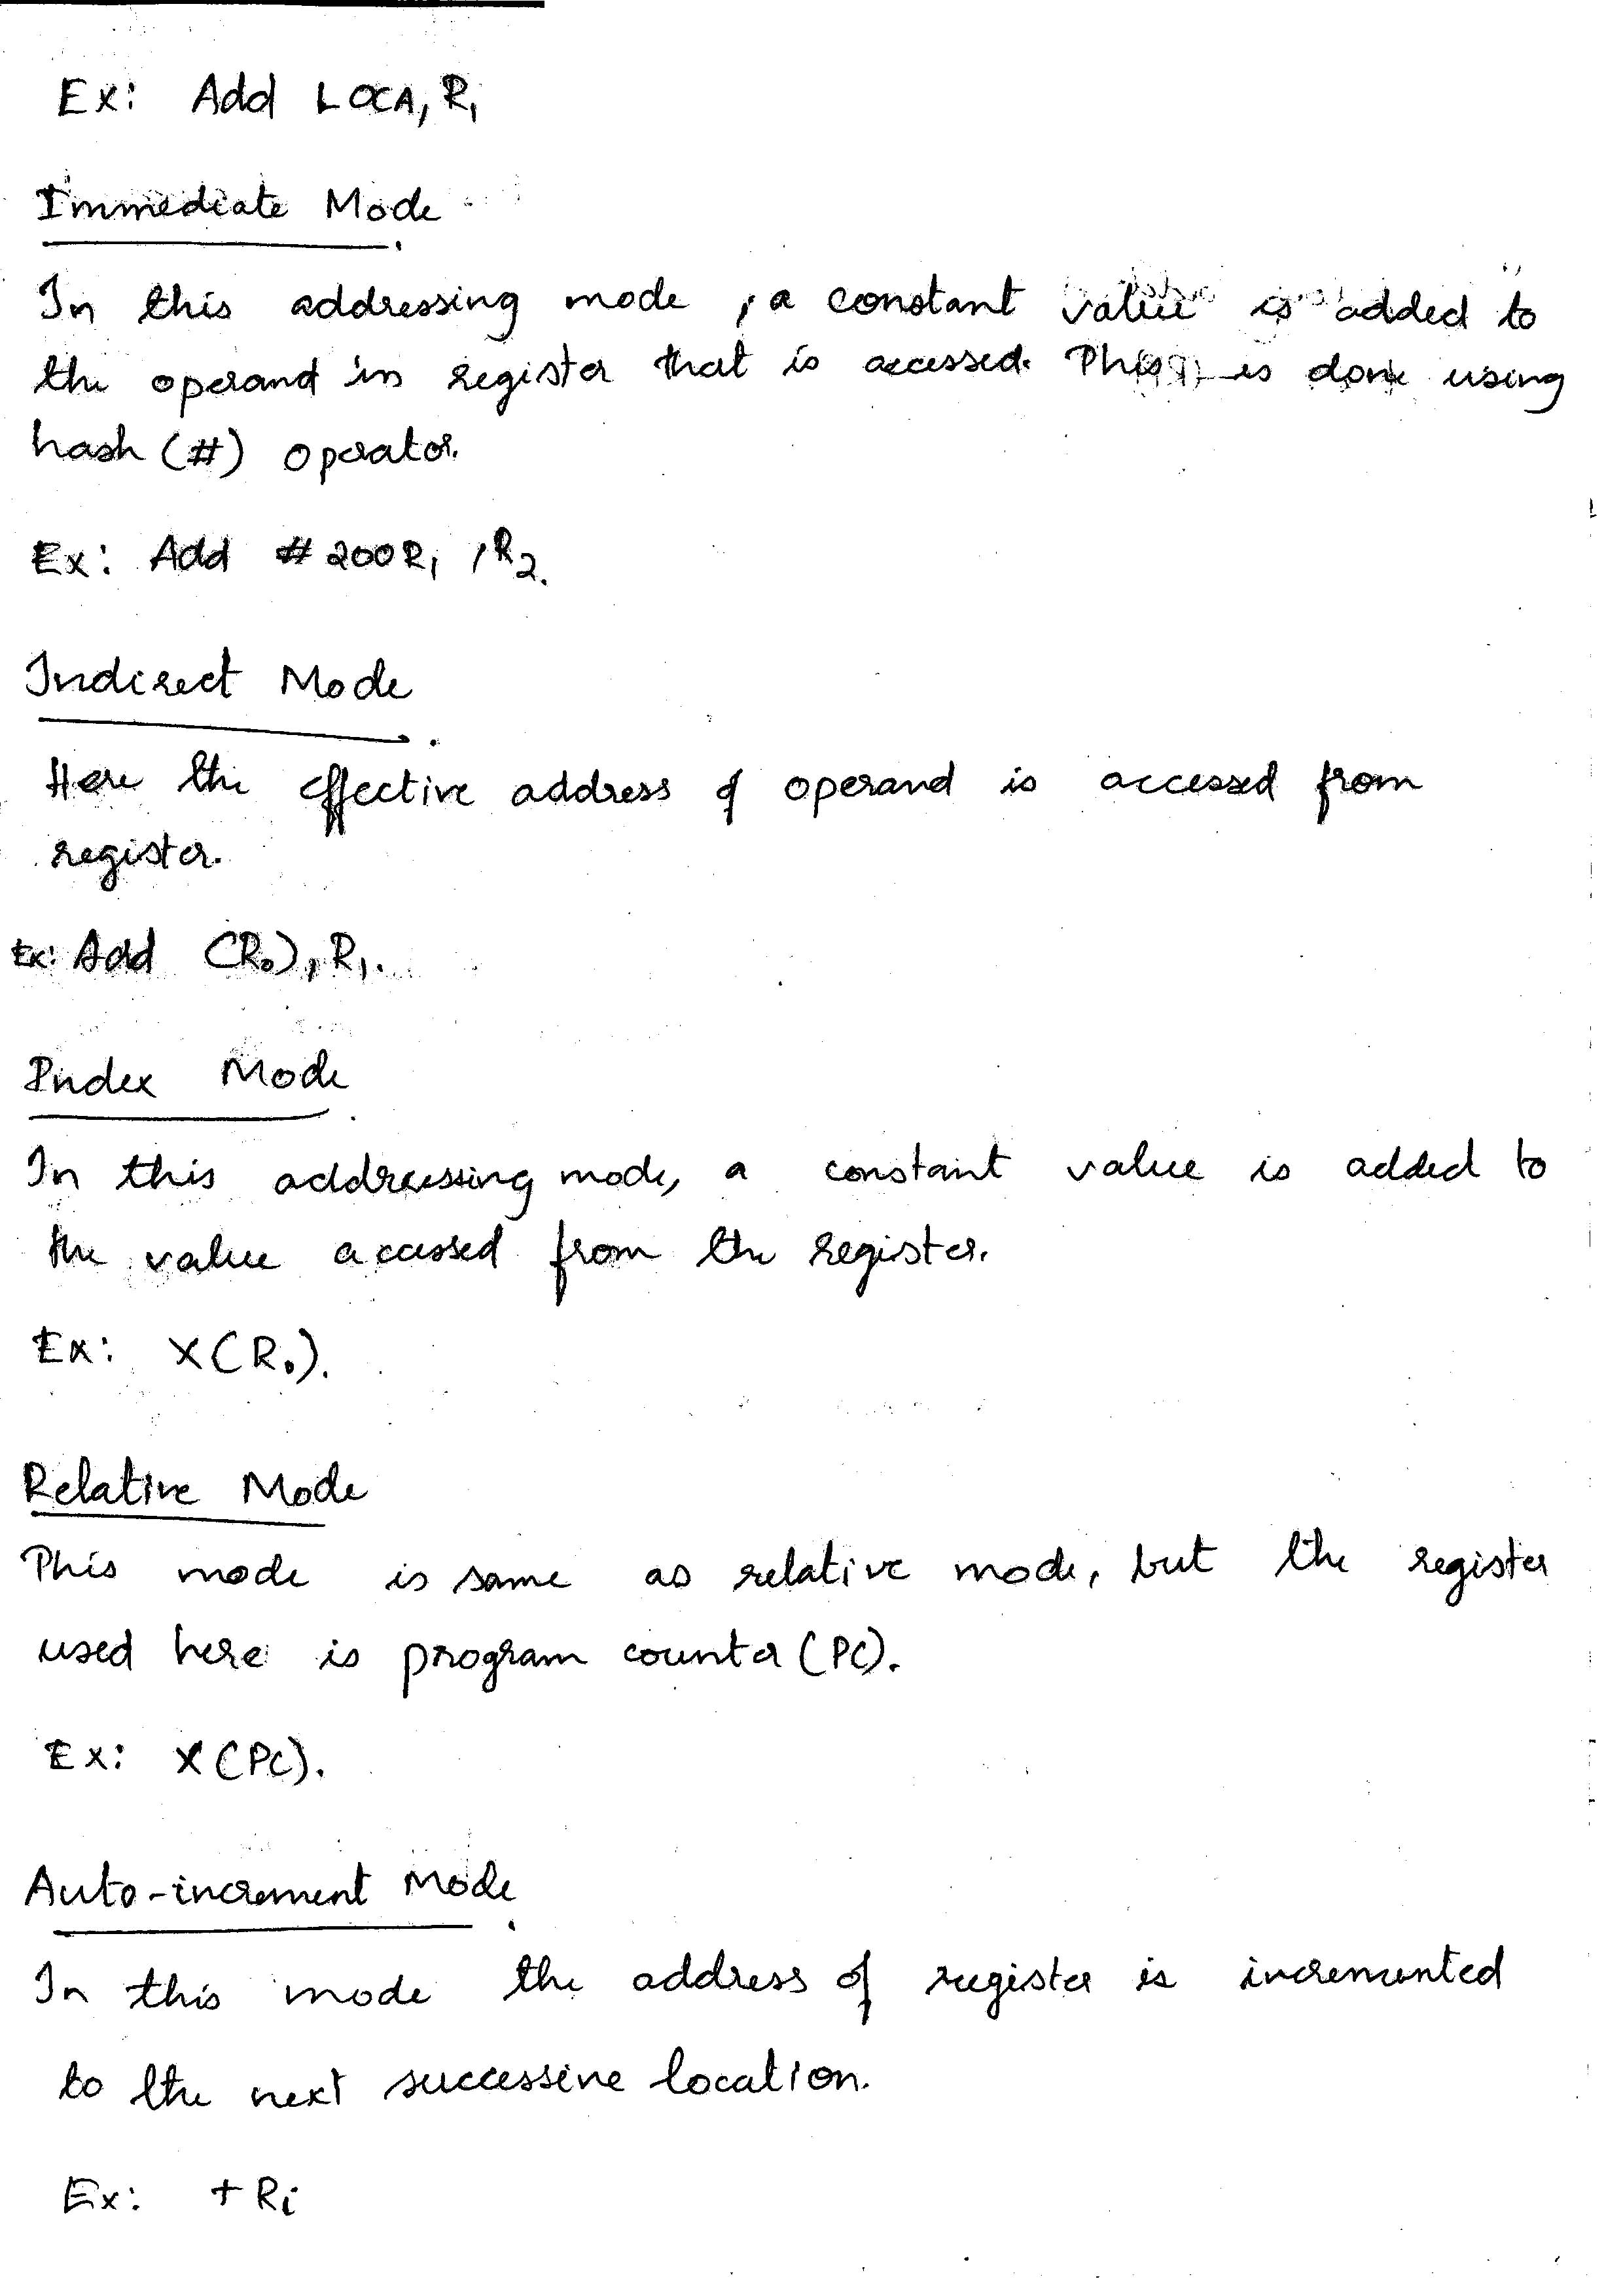 Ex: Add LOCA, R1
Immediate Mode
In this addressing mode, a constant value is added to
the operand in register that is accessed. This is done using
hash (#) operator.
Ex: Add #200R1, R2.
Indirect Mode
Here the effective address of operand is accessed from
register.
Ex: Add (R0), R1.
Index Mode
In this addressing mode, a constant value is added to
the value accessed from the register.
Ex: X(R0).
Relative Mode
This mode is same as relative mode, but the register
used here is program counter (PC).
Ex: X(PC).
Auto-increment Mode
In this mode the address of register is incremented
to the next successive location.
Ex: +Ri